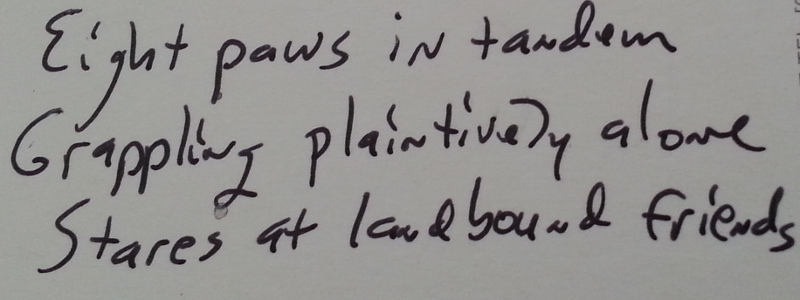 Eight paws in tandem
Grappling plaintively alone
Stares at landbound friends